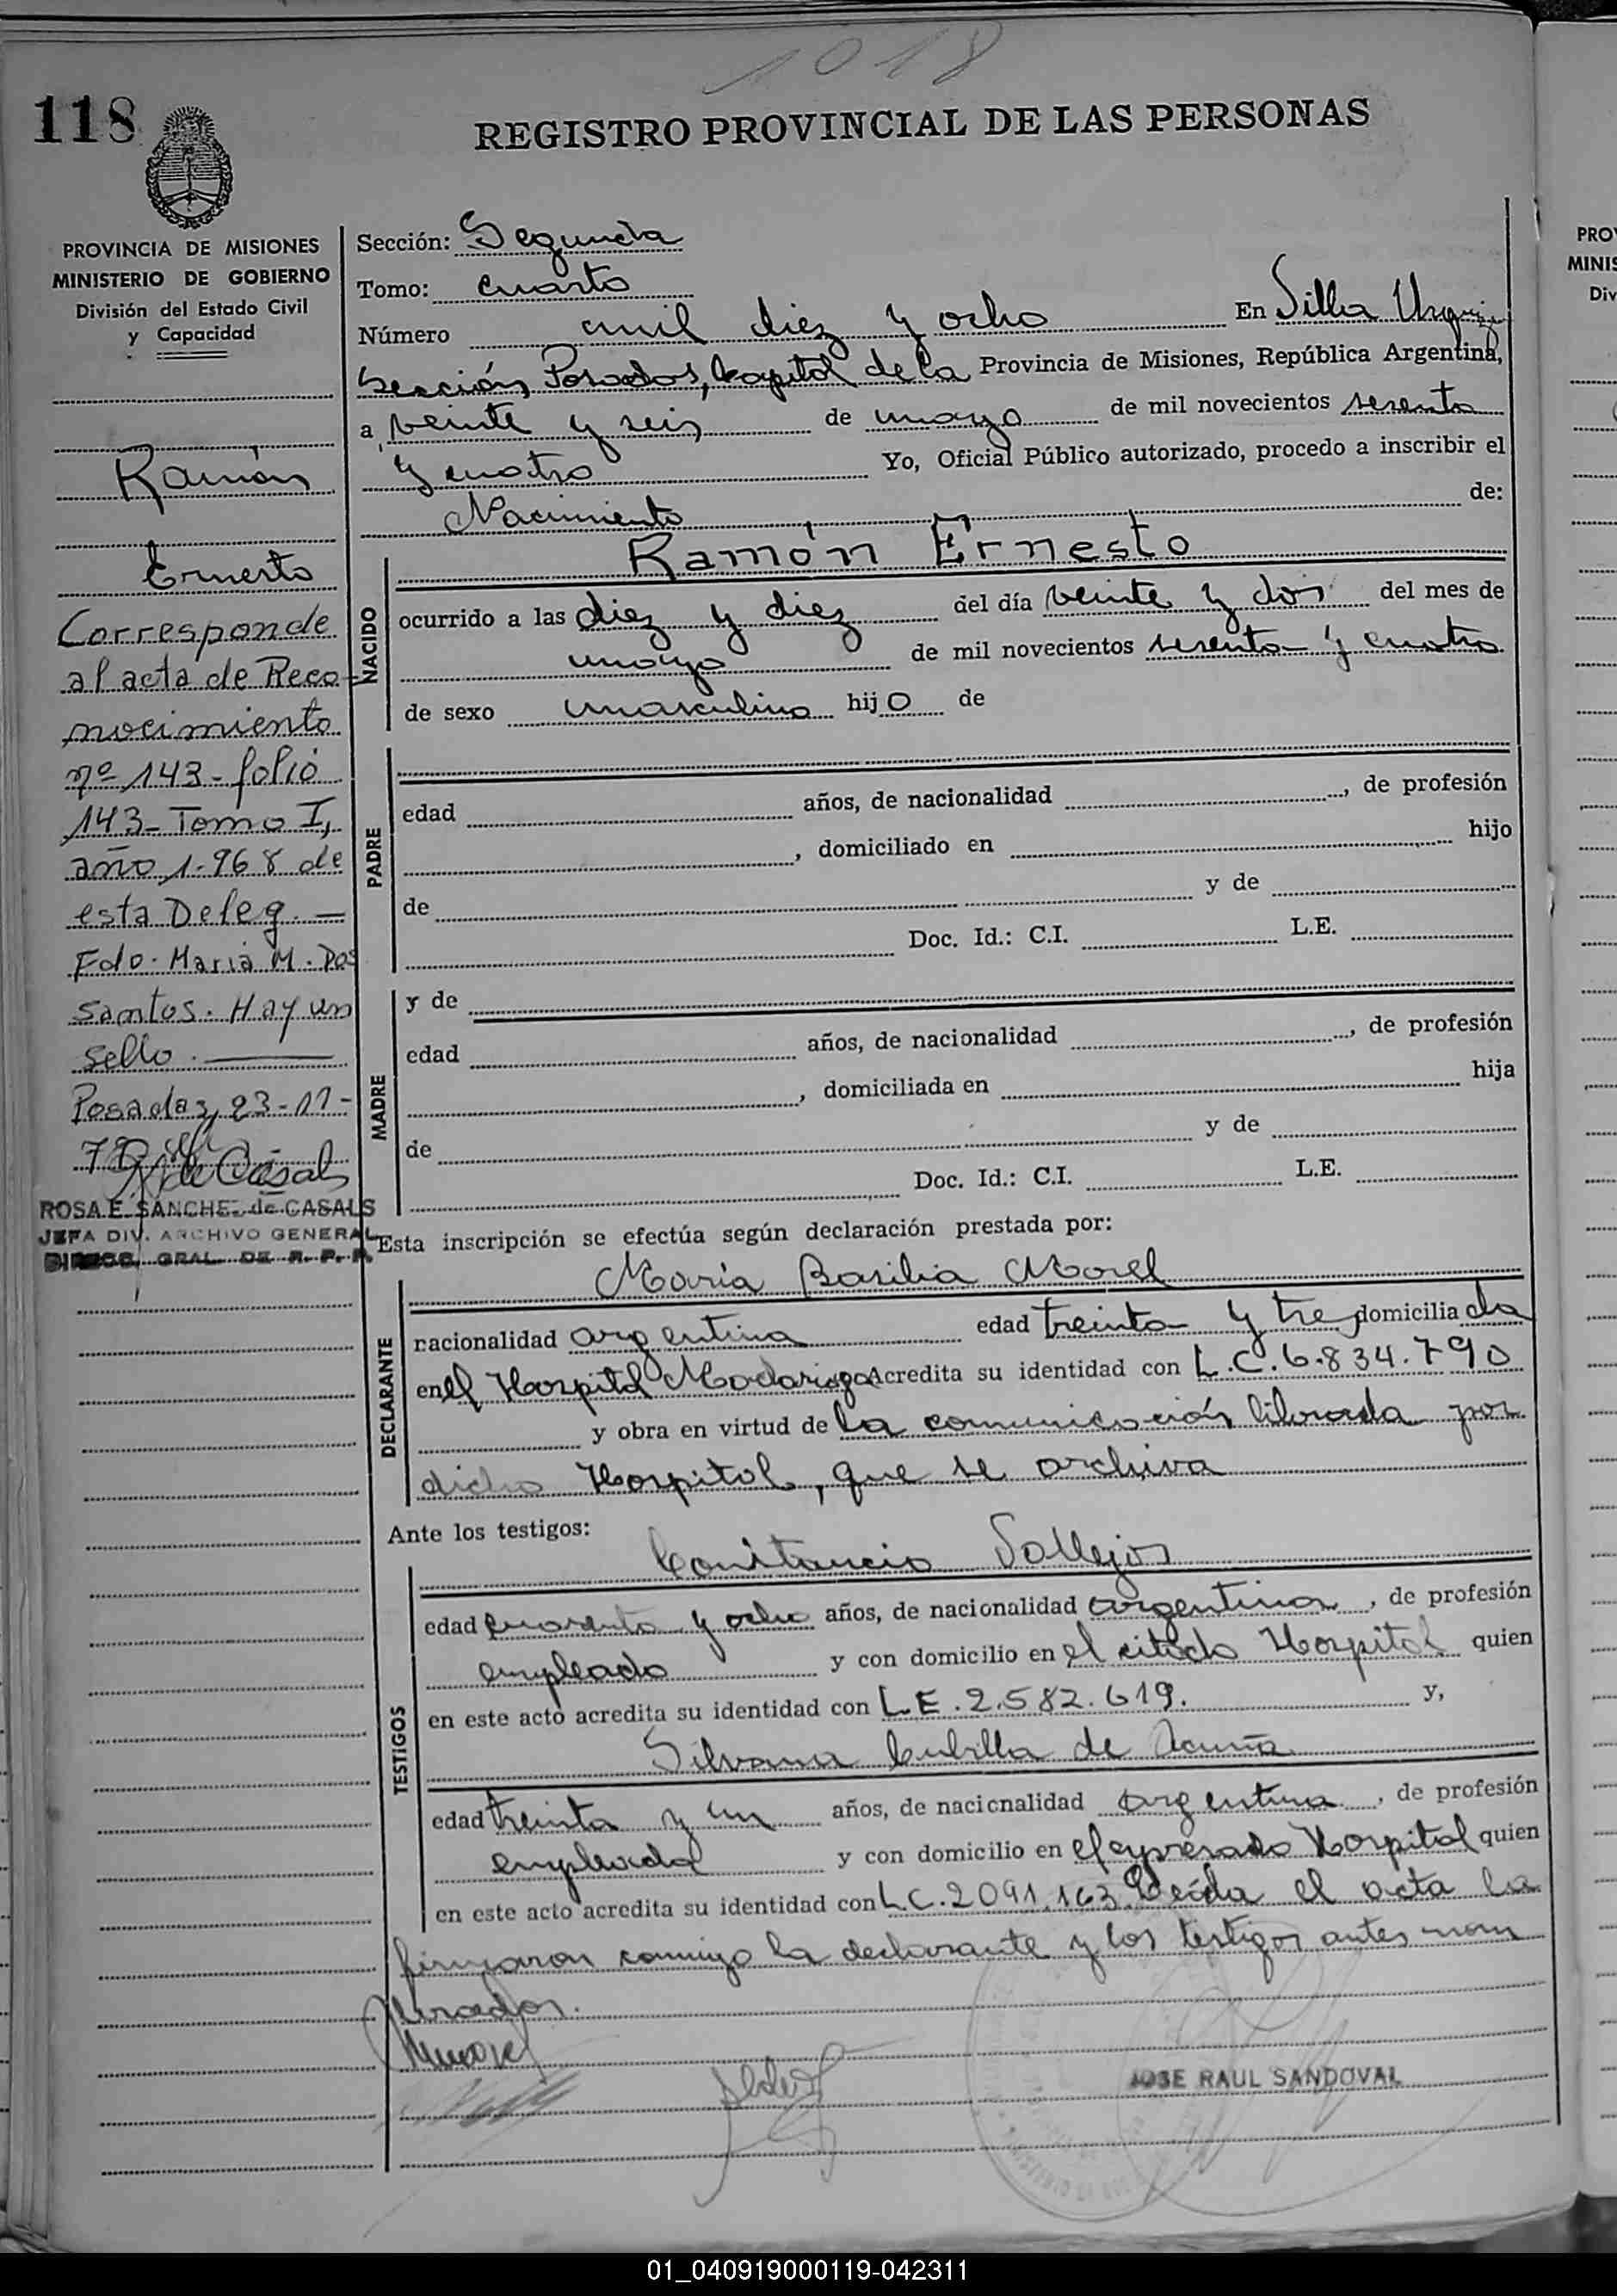 1018
118
REGISTRO PROVINCIAL DE LAS PERSONAS
PROVINCIA DE MISIONES
MINISTERIO DE GOBIERNO
División del Estado Civil
y Capacidad
Ramón
Ernesto
Corresponde
al acta de Reco-
nocimiento
nº 143- folio
143- Tomo I,
año 1.968 de
esta Deleg. —
Fdo. Maria M. Dos
Santos. Hay un
sello.
Posadas, 23-11-
ROSA E. SANCHEZ de CASALS
JEFA DIV. ARCHIVO GENERAL
DIRECC. GRAL. DE R. P. P.
Sección: Segunda
Tomo: cuarto
Número mil diez y ocho En Villa Urquiza
Sección Posadas, Capital de la Provincia de Misiones, República Argentina,
a veinte y seis de mayo de mil novecientos sesenta
y cuatro Yo, Oficial Público autorizado, procedo a inscribir el
Nacimiento de:
NACIDO
Ramón Ernesto
ocurrido a las diez y diez del día veinte y dos del mes de
mayo de mil novecientos sesenta y cuatro
de sexo masculino hijo de
PADRE
edad años, de nacionalidad , de profesión
, domiciliado en hijo
de y de
Doc. Id.: C.I. L.E.
MADRE
y de
edad años, de nacionalidad , de profesión
, domiciliada en hija
de y de
Doc. Id.: C.I. L.E.
Esta inscripción se efectúa según declaración prestada por:
DECLARANTE
María Basilia Morel
nacionalidad argentina edad treinta y tres domiciliada
en el Hospital Madariaga Acredita su identidad con L.C.6.834.790
y obra en virtud de la comunicación librada por
dicho Hospital, que se archiva
Ante los testigos:
TESTIGOS
Constancio Vallejos
edad cuarenta y ocho años, de nacionalidad argentina, de profesión
empleado y con domicilio en el citado Hospital quien
en este acto acredita su identidad con L.E.2.582.619. y,
Silvana Cubilla de Acuña
edad treinta y un años, de nacionalidad argentina, de profesión
empleada y con domicilio en el expresado Hospital quien
en este acto acredita su identidad con L.C.2091.163. Leída el acta la
firmaron conmigo la declarante y los testigos antes nom
brados.
JOSE RAUL SANDOVAL
01_040919000119-042311